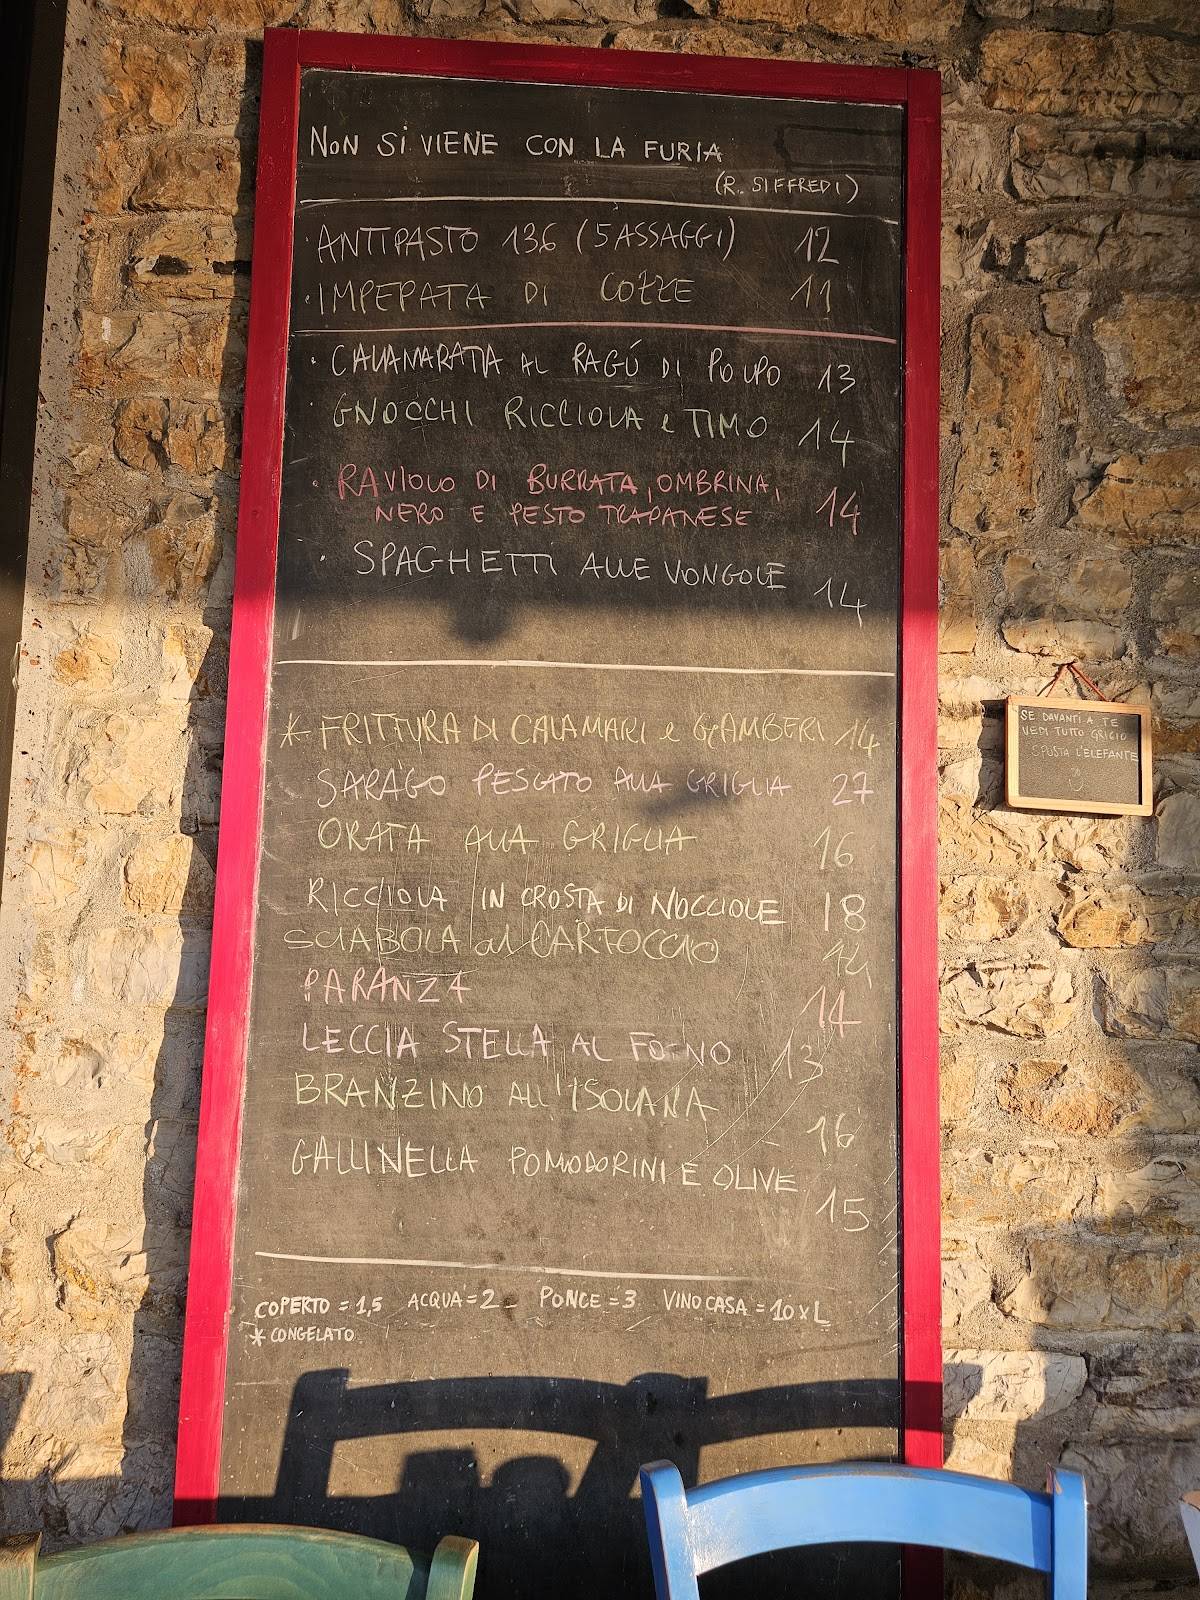 NON SI VIENE CON LA FURIA
(R. SIFFREDI)
· ANTIPASTO 136 (5 ASSAGGI) 12
· IMPEPATA DI COZZE 11
· CALAMARATA AL RAGÚ DI POLPO 13
GNOCCHI RICCIOLA e TIMO 14
· RAVIOLO DI BURRATA, OMBRINA,
NERO E PESTO TRAPANESE 14
· SPAGHETTI ALLE VONGOLE 14
* FRITTURA DI CALAMARI e GAMBERI 14
SARAGO PESCATO ALLA GRIGLIA 27
ORATA ALLA GRIGLIA 16
RICCIOLA IN CROSTA DI NOCCIOLE 18
SCIABOLA al CARTOCCIO 14
PARANZA 14
LECCIA STELLA AL FORNO 13
BRANZINO ALL'ISOLANA 16
GALLINELLA POMODORINI E OLIVE 15
COPERTO = 1,5 ACQUA = 2 PONCE = 3 VINO CASA = 10 x L
* CONGELATO
SE DAVANTI A TE
VEDI TUTTO GRIGIO
SPOSTA L'ELEFANTE